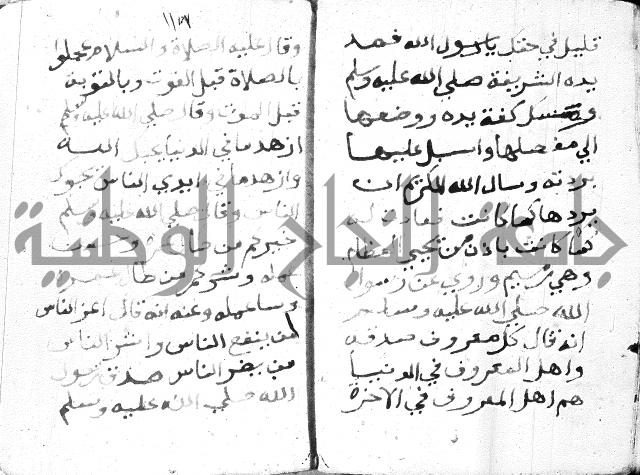 قليل في حقك يا رسول الله فمد
يده الشريفة صلي الله عليه وسلم
كفة يده ووضعها
الي مفصلها واسبل عليها
بردته وسال الله ان
يردها كما كانت فعادت
كما كانت باذن من يحيي العظام
وهي رميم وروي عن رسول
الله صلي الله عليه وسلم
انه قال كل معروف صدقه
واهل المعروف في الدنيا
هم اهل المعروف في الاخرة
وقال عليه الصلاة والسلام عجلوا
بالصلاة قبل الفوت وبالتوبة
قبل الموت وقال صلي الله عليه وسلم
ازهد ما في الدنيا يحبك الله
وازهد ما في ايدي الناس
الناس وقال صلي الله عليه وسلم
خيركم من طال عمره وحسن
عمله وشركم من طال عمره
وساء عمله وعنه انه قال اعز الناس
من ينفع الناس واشر الناس
من يضر الناس صدق رسول
الله صلي الله عليه وسلم
جامعة الملك الوطنية